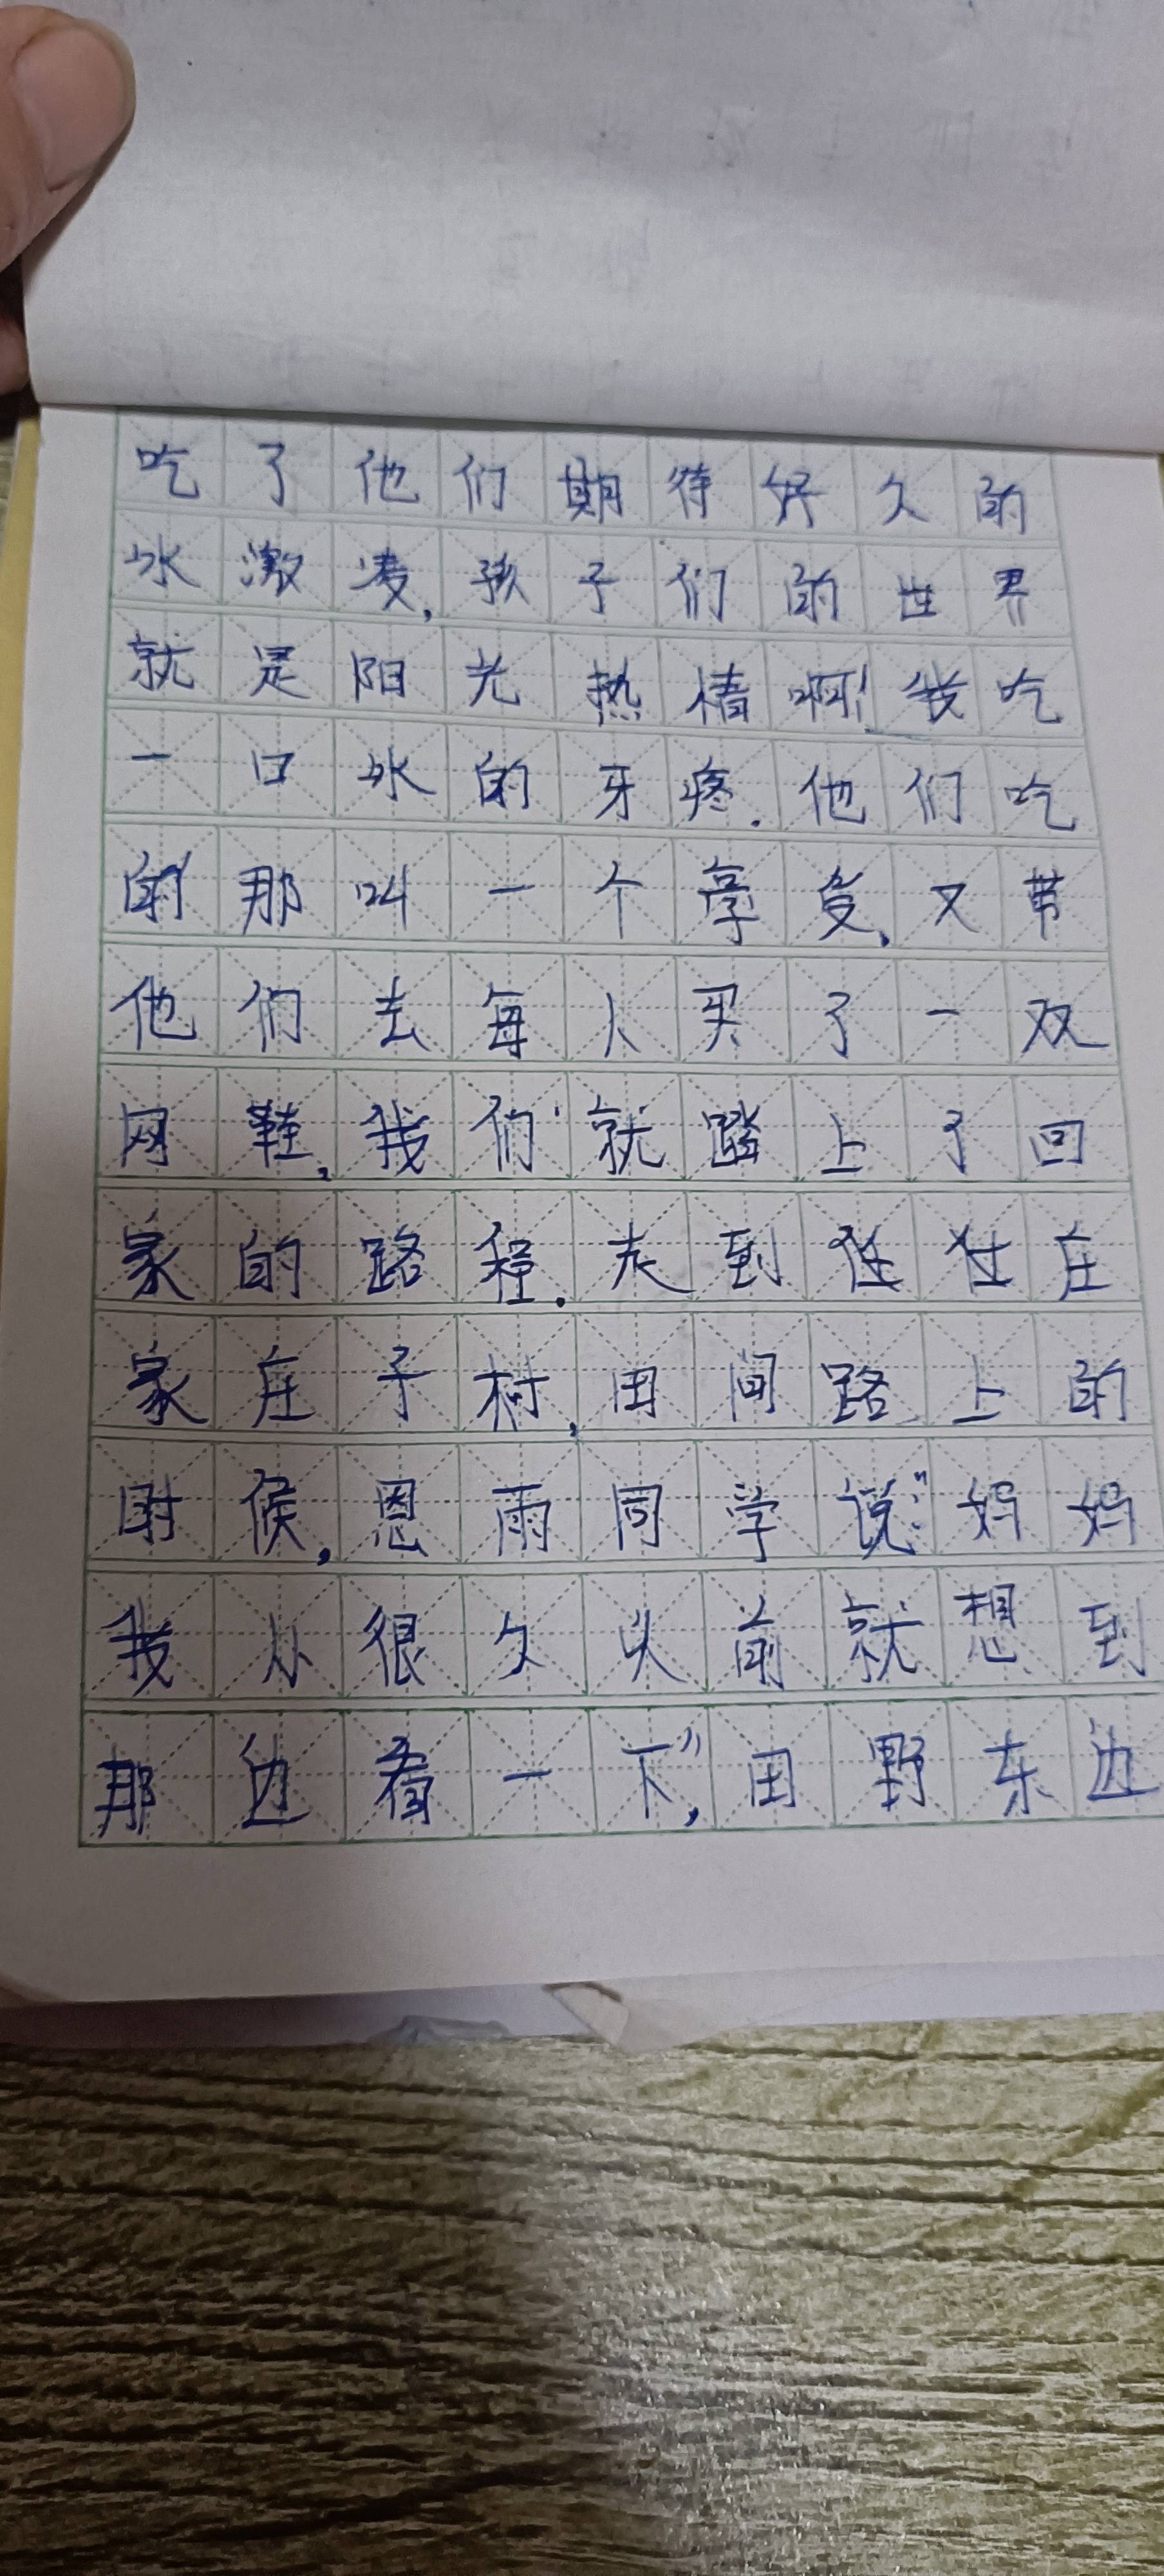 吃了他们期待好久的
冰激凌,孩子们的世界
就是阳光热情啊!我吃
一口冰的牙疼.他们吃
的那叫一个享受,又带
他们去每人买了一双
网鞋,我们就踏上了回
家的路程.走到 庄
家庄子村,田间路上的
时候,恩雨同学说:"妈妈
我从很久以前就想到
那边看一下",田野东边